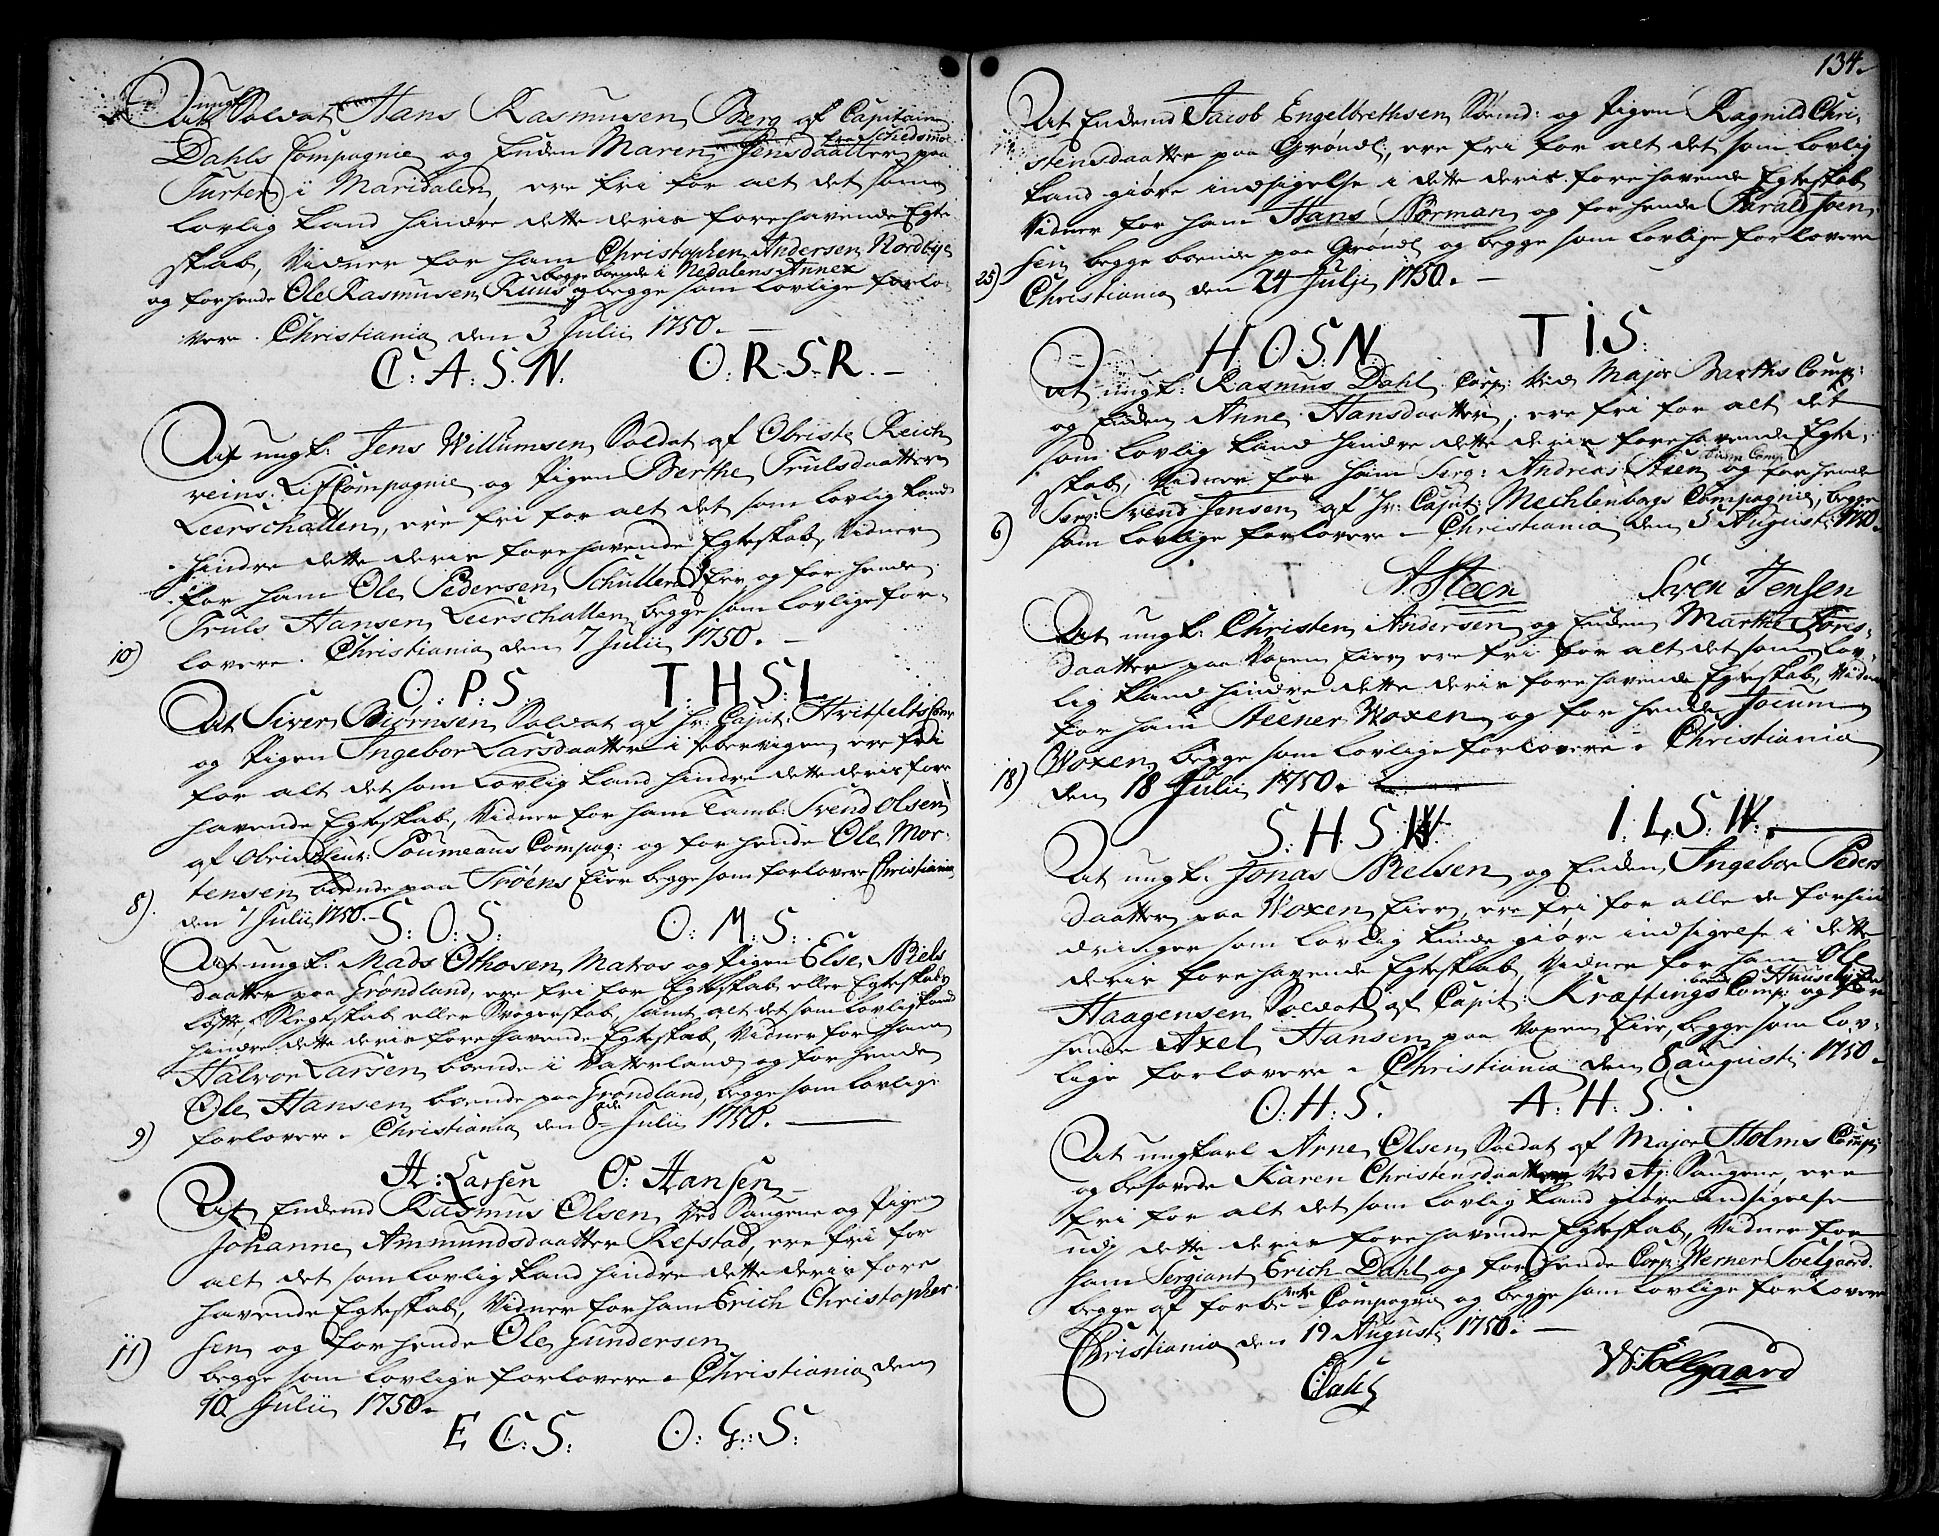 At ungk. Soldat Hans Rasmusen Berg af Capitain
fra Schedsmo
Dahls Compagnie og Enden Maren Jensdaatter paa
Turter i Maridalen, ere fri for alt det som
lovlig kand hindre dette deris forehavende Egte-
skab, Vidner for ham Christopher Andersen Nordbye
begge boende i Nedalens Annex
og for hende Ole Rasmusen Ruus og begge som lovlige forlo-
vere. Christiania den 3 Julii 1750.
C: A: S: N. O: R: S: R.
At ungk: Jens Willumsen Soldat af Obriste Reich
weins Lif Compagnie og Pigen Berthe Trulsdaatter
Leerschallen, ere fri for alt det som lovlig kand
hindre dette deris forehavende Egteskab, Vidner
for ham Ole Pedersen Schullerud Eier og for hende
Truls Hansen Leerschallen begge som lovlige for-
10) lovere. Christiania den 7 Julii 1750.
O: P: S. T. H S: L
At Siver Biørnsen Soldat af Hr: Capit: Hvitfelts Comp
og Pigen Ingebor Larsdaatter i Pebervigen, ere fri
for alt det som lovlig kand hindre dette deris fore
havende Egteskab, Vidner for ham Tamb: Svend Olsen
af Obrist Lieut: Poumeaus Compag: og for hende Ole Mor-
tensen boende paa Trøens Eier begge som forlovere Christiania
8). den 7 Julii 1750.
S: O: S. O: M: S:
At ungk: Mads Othosen Matros og Pigen Else Niels
daatter paa Grøndland, ere fri for Egteskab eller Egteskabs
løfte, Slegtskab eller Svogerskab, samt alt det som lovlig kand
hindre dette deris forehavende Egteskab, Vidner for ham
Halvor Larsen boende i Vatterland og for hende
Ole Hansen boende paa Grøndland, begge som lovlige
9) forlovere. Christiania den 8de Julii 1750.
H: Larsen O: Hansen
At Endemd Rasmus Olsen Ved Saugene og Pigen
Johanne Ammundsdaatter Refstad, ere fri for
alt det som lovlig kand hindre dette deris fore
havende Egteskab, Vidner for ham Erich Christopher-
sen og for hende Ole Gundersen
11) begge som lovlige forlovere. Christiania den
10 Julii 1750.
E C: S: O: G: S:
134.
At Endemd Jacob Engelbrethsen og Pigen Ragnild Chri-
stensdaatter paa Grøndl:, ere fri for alt det som lovlig
kand giøre indsigelse i dette deris forehavende Egteskab
Vidner for ham Hans Norman og for hende Tarald Joen-
sen begge boende paa Grøndl og begge som lovlige forlovere
25) Christiania den 24 Julij 1750.
H. O: S: N. T I: S:
At ungk: Rasmus Dahl Corp: Ved Major Barths Comp:
og Enden Anne Hansdaatter, ere fri for alt det
som lovlig kand hindre dette deris forehavende Egte-
skab, Vidner for ham Serg: Andreas Steen og for hende
Serg: Svend Jensen af Hr: Capit: Mechlenborgs Compagnie, begge
6) som lovlige forlovere. Christiania den 5 Augusti 1750.
A Steen Sven Jensen
At ungk: Christen Andersen og Enden Marthe Tores-
daatter paa Voxen Eier ere fri for alt det som lov-
lig kand hindre dette deris forehavende Egteskab, Vidner
for ham Steener Woxen og for hende Joeum
Woxen begge som lovlige forlovere. Christiania
18) den 18 Julii 1750.
S: H: S: W. I: L: S: W:
At ungk: Jonas Nielsen og Enden Ingebor Peders
daatter paa Woxen Eier, ere fri for alle de forhin
dringer som lovlig kunde giøre indsigelse i dette
deris forehavende Egteskab, Vidner for ham Ole
Haagensen Soldat af Capit: Kræftings Comp: og for
hende Axel Hansen paa Voxen Eier, begge som lov-
lige forlovere. Christiania den 8 augusti 1750.
O: H: S. A: H: S.
At ungkarl Arne Olsen Soldat af Major Holms Comp:
og besovede Karen Christensdaatter Ved Ag: Saugene, ere
fri for alt det som lovlig kand giøre indsigelse
udj dette deris forehavende Egteskab, Vidner for
ham Sergiant Erich Dahl og for hende Corp: Werner Soelgaard.
begge af forbete Compagnie og begge som lovlige forlovere
Christiania den 19 Augusti 1750.
EDahl WSollgaard